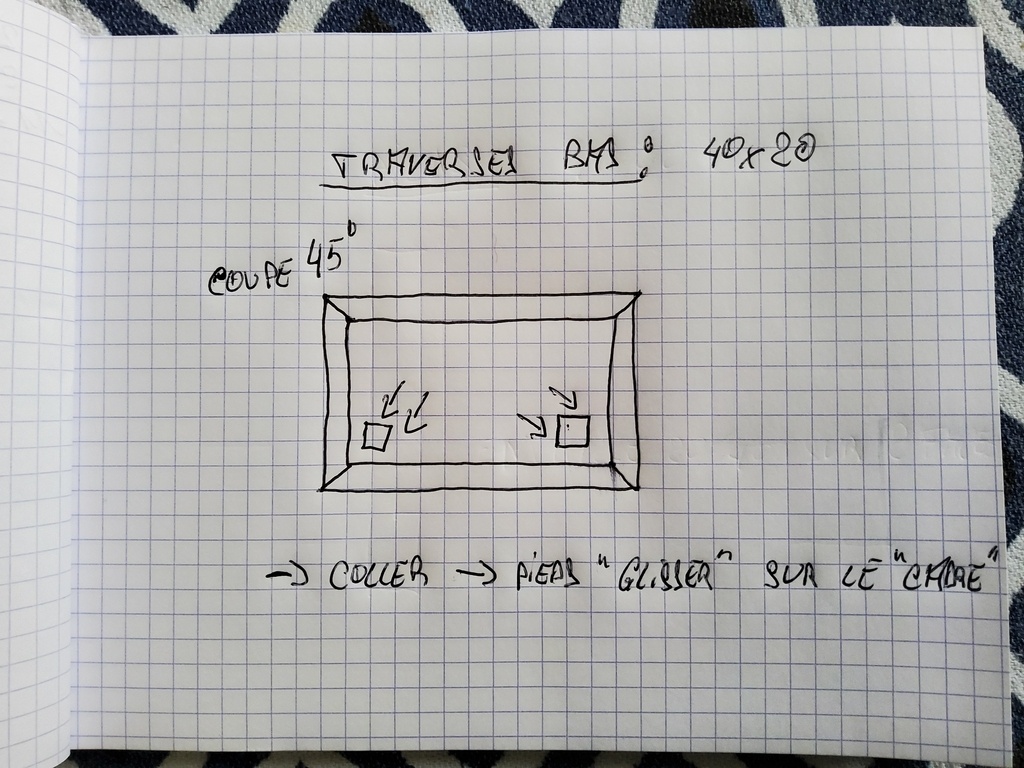 TRAVERSES BAS : 40x20
COUPE 45°
→ COLLER → PIEDS "GLISSER" SUR LE "CADRE"